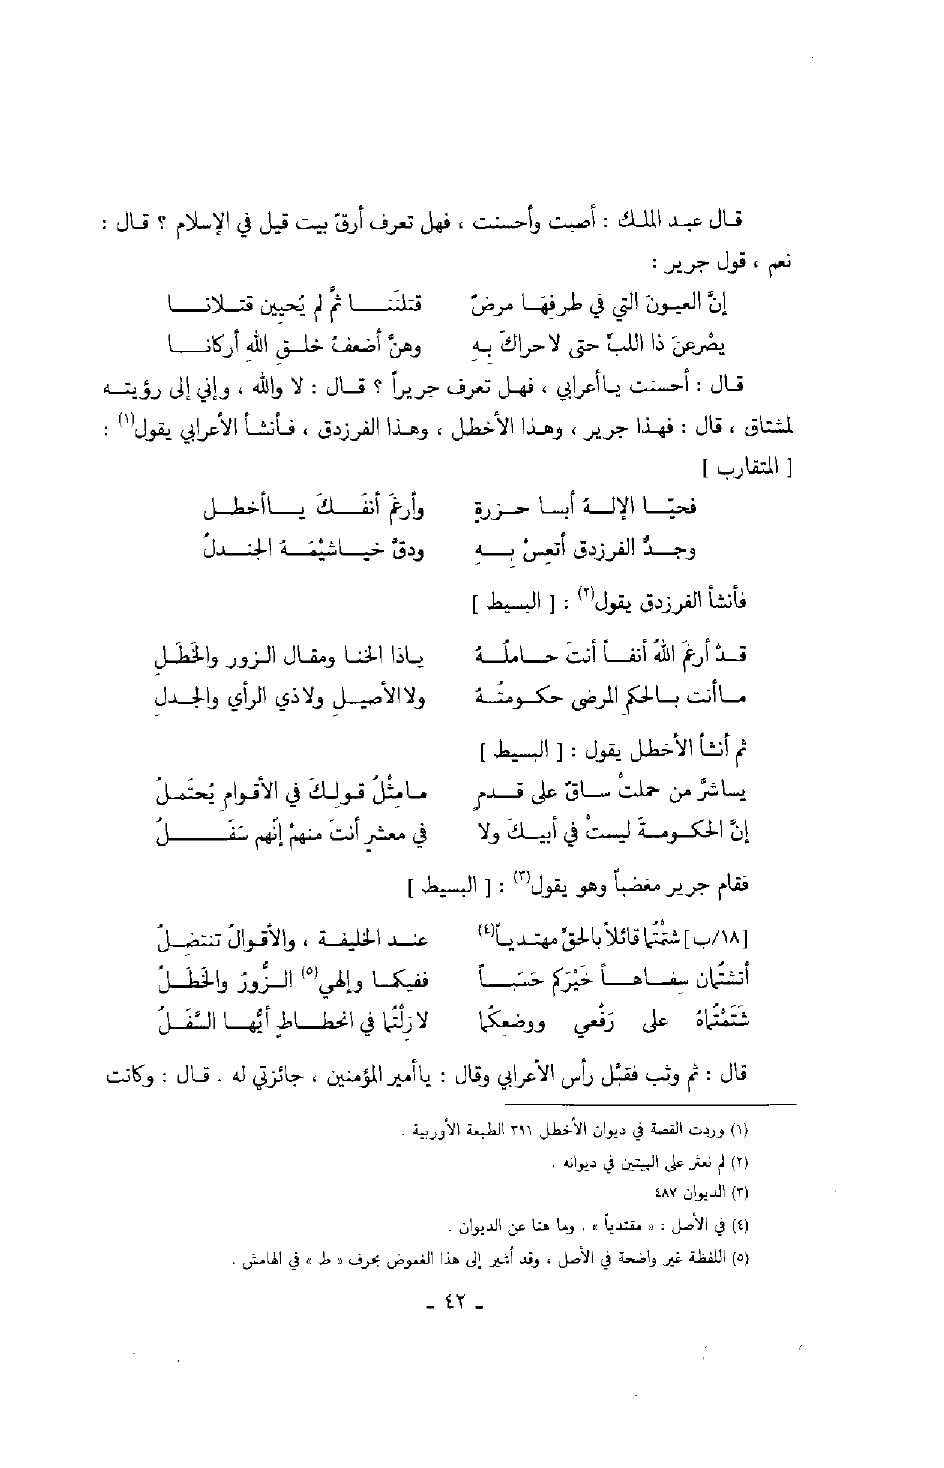 قال عبد الملك : أصبت وأحسنت ، فهل تعرف أرقّ بيت قيل في الإسلام ؟ قال :
نعم ، قول جرير :
إنَّ العيونَ التي في طرفِهَا مرضٌ قتلنَنا ثمَّ لم يُحيين قتلانا
يصْرعنَ ذا اللبِّ حتى لا حراكَ بِهِ وهنَّ أضعفُ خلقِ اللهِ أركانا
قال : أحسنت ياأعرابي ، فهل تعرف جريراً ؟ قال : لا والله ، وإني إلى رؤيته
لمشتاق ، قال : فهذا جرير ، وهذا الأخطل ، وهذا الفرزدق ، فأنشأ الأعرابي يقول(١) :
[ المتقارب ]
فحيّا الإلهُ أبا حزرةٍ وأرغمَ أنفَكَ ياأخطلُ
وجدُّ الفرزدق أتعِسْ بِهِ ودقَّ خياشيْمَهُ الجندلُ
فأنشأ الفرزدق يقول(٢) : [ البسيط ]
قدْ أرغمَ اللهُ أنفاً أنتَ حاملُهُ ياذا الخنا ومقال الزور والخَطَلِ
ماأنت بالحكمِ المرضي حكومتُهُ ولاالأصيلِ ولاذي الرأي والجدلِ
ثم أنشأ الأخطل يقول : [ البسيط ]
ياشرَّ من حملتْ ساقٌ على قدمٍ مامثْلُ قولِكَ في الأقوامِ يُحتَملُ
إنَّ الحكومةَ ليستْ في أبيكَ ولا في معشرٍ أنتَ منهمْ إنَّهم سَفَلُ
فقام جرير مغضباً وهو يقول(٣) : [ البسيط ]
[١٨/ب] شتَمْتُما قائلاً بالحقِّ مهتدياً(٤) عند الخليفة ، والأقوالُ تنتضلُ
أتشتُمان سفاهاً خَيْرَكم حَسَباً ففيكما وإلهي(٥) الزُّورُ والخَطَلُ
شَتَمْتُماهُ على رَفْعي ووضعِكُما لازلْتُما في انحطاطٍ أيُّها السَّفَلُ
قال : ثم وثب فقبّل رأس الأعرابي وقال : ياأمير المؤمنين ، جائزتي له . قال : وكانت
(١) وردت القصة في ديوان الأخطل ٣٩١ الطبعة الأوربية .
(٢) لم نعثر على البيتين في ديوانه .
(٣) الديوان ٤٨٧
(٤) في الأصل : « مقتدياً » . وما هنا عن الديوان .
(٥) اللفظة غير واضحة في الأصل ، وقد أشير إلى هذا الغموض بحرف « ط » في الهامش .
- ٤٢ -